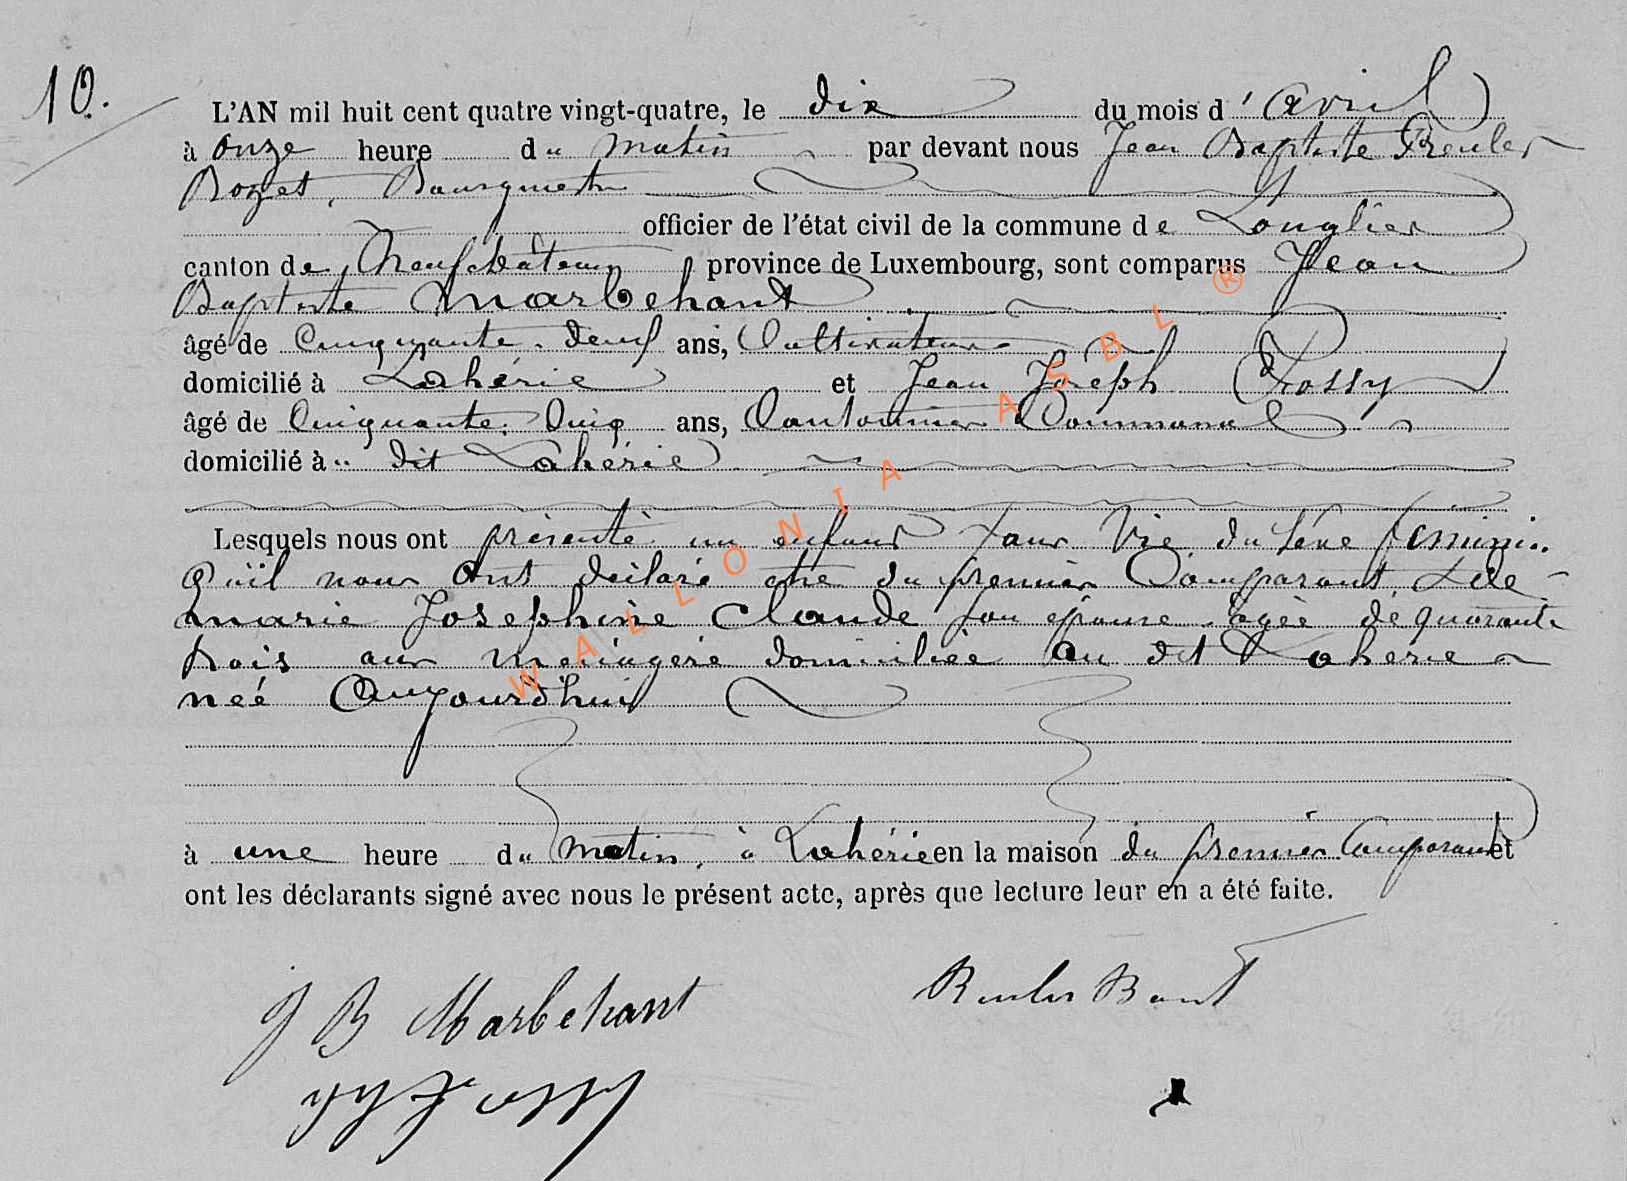 10.
L'AN mil huit cent quatre vingt-quatre, le dix du mois d'Avril
à onze heure du matin par devant nous Jean Baptiste
Bozet, Bourgmestre
officier de l'état civil de la commune de Longlier
canton de Neufchâteau province de Luxembourg, sont comparus Jean
Baptiste Marbehant
âgé de Cinquante-Neuf ans, Cultivateur
domicilié à Lahérie et Jean Joseph Fossy
âgé de Cinquante Cinq ans, Cantonnier Communal
domicilié à dit Lahérie
Lesquels nous ont présenté un enfant sans Vie du Séxe féminin
Qu'il nous Ont déclaré être du premier Comparant & de
Marie Josephine Claude son épouse agée de quarante
trois ans Menagére domiciliée Au dit Laherie
neé Aujourd'hui
à une heure du Matin, à Lahérie en la maison du premier Comparant et
ont les déclarants signé avec nous le présent acte, après que lecture leur en a été faite.
J B Marbehant
JJ Fossy
WALLONIA ASBL ®